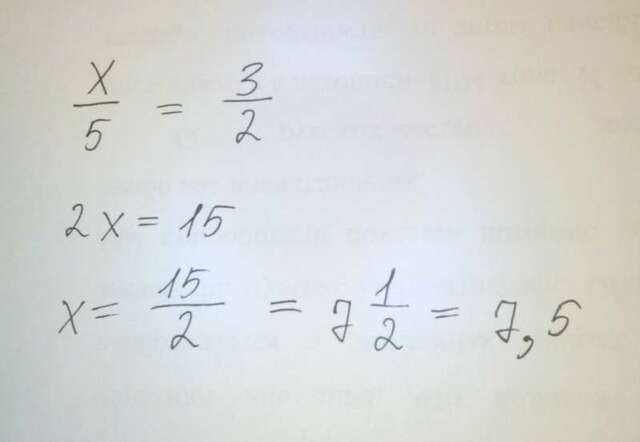 x/5 = 3/2
2x = 15
x = 15/2 = 7 1/2 = 7,5